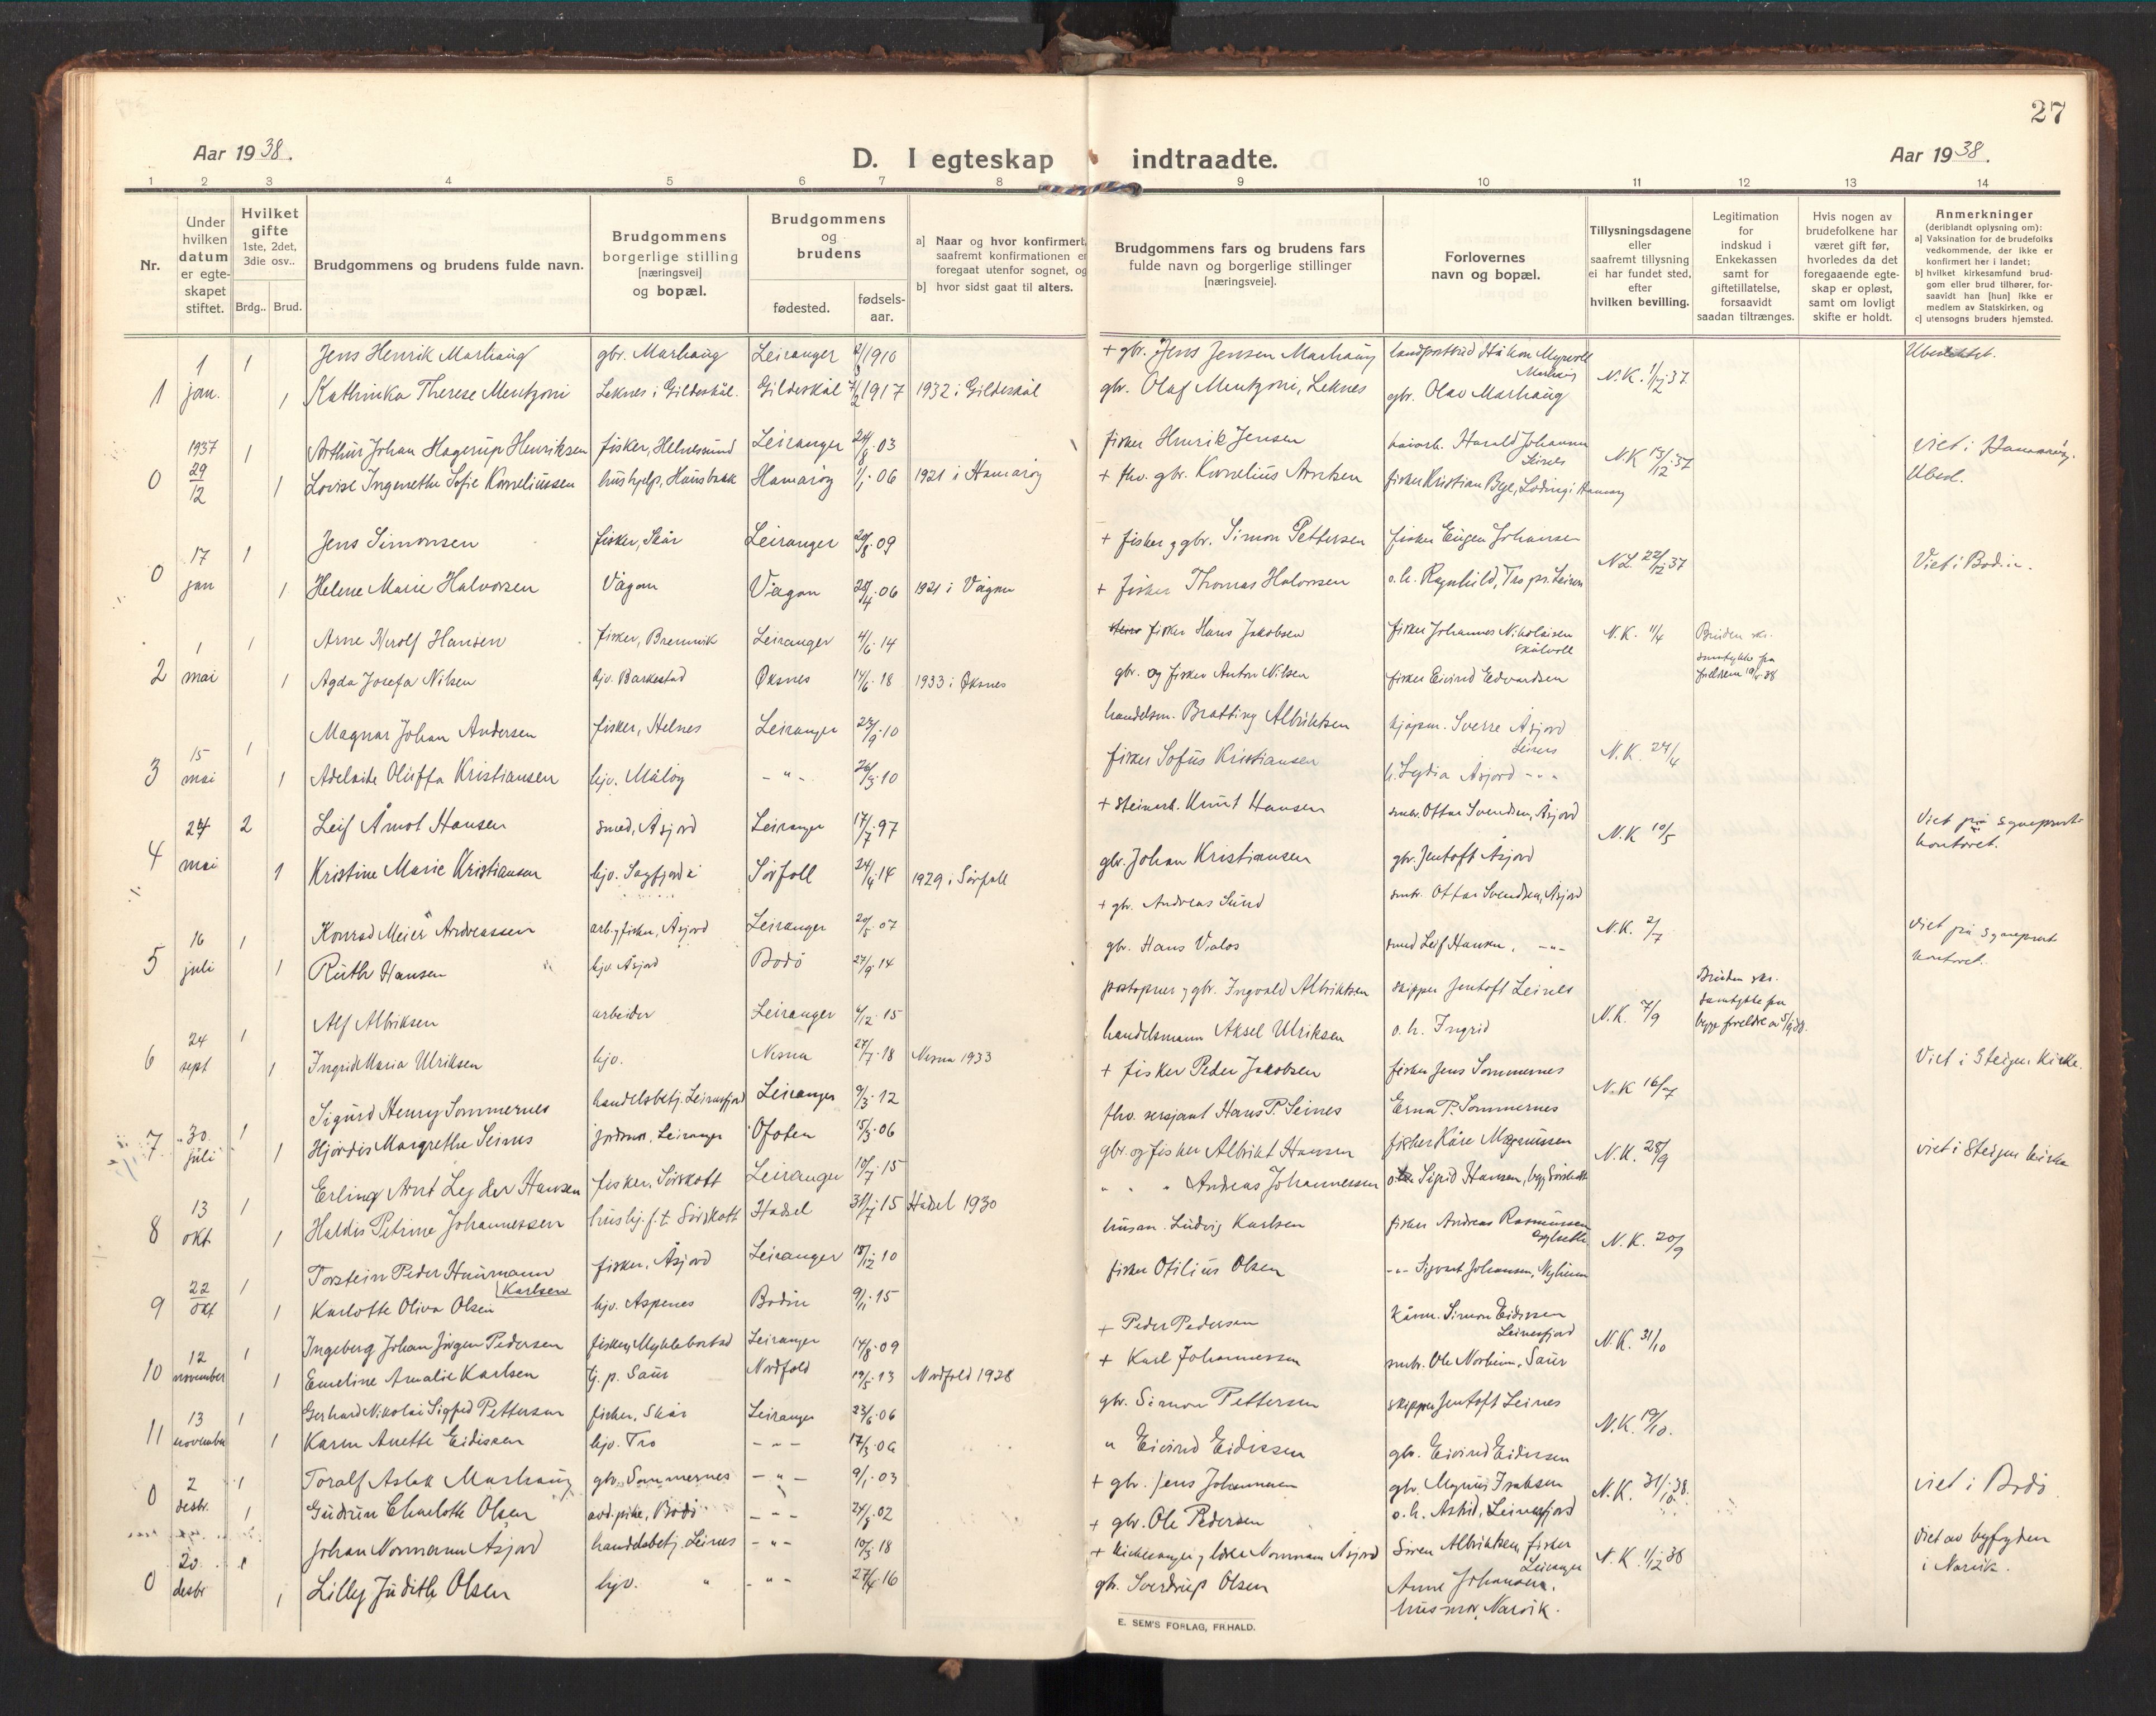 27
Aar 1938.
D. I egteskap indtraadte.
Aar 1938.
1 2 3 4 5 6 7 8 9 10 11 12 13 14
Nr.
Under hvilken datum er egte-skapet stiftet.
Hvilket gifte 1ste, 2det, 3die osv..
Brdg.. Brud.
Brudgommens og brudens fulde navn.
Brudgommens borgerlige stilling [næringsvei] og bopæl.
Brudgommens og brudens
fødested.
fødsels-aar.
a] Naar og hvor konfirmert, saafremt konfirmationen er foregaat utenfor sognet, og
b] hvor sidst gaat til alters.
Brudgommens fars og brudens fars fulde navn og borgerlige stillinger [næringsveie].
Forlovernes navn og bopæl.
Tillysningsdagene eller saafremt tillysning ei har fundet sted, efter hvilken bevilling.
Legitimation for indskud i Enkekassen samt for giftetillatelse, forsaavidt saadan tiltrænges.
Hvis nogen av brudefolkene har været gift før, hvorledes da det foregaaende egte-skap er opløst, samt om lovligt skifte er holdt.
Anmerkninger (deriblandt oplysning om):
a] Vaksination for de brudefolks vedkommende, der ikke er konfirmert her i landet;
b] hvilket kirkesamfund brud-gom eller brud tilhører, for-saavidt han [hun] ikke er medlem av Statskirken, og
c] utensogns bruders hjemsted.
1 1 Jens Henrik Marhaug gbr. Marhaug Leiranger 1910 + gbr. Jens Jensen Marhaug landpostbud Håkon Myrvoll Marhaug
1 jan. 1 Kathinka Therese Mentzoni Leknes i Gildeskål. Gildeskål 1917 1932 i Gildeskål gbr. Olaf Mentzoni, Leknes gbr. Olav Marhaug N.K. 1/12 37.
1937 1 Arthur Johan Hagerup Henriksen fisker, Helnessund Leiranger 03 fisker Henrik Jensen Harald Johansen Leines N.K 13/12 37 viet i Hamarøy.
0 29/12 1 Lovise Ingenethe Sofie Korneliussen hushjelp, Hamarøy 1/1 06 1921 i Hamarøy + fhv. gbr. Kornelius Arntsen fisker Kristian
17 1 Jens Simonsen fisker, Skår Leiranger 09 + fisker og gbr. Simon Pettersen fisker Eugen Johansen
0 jan 1 Helene Marie Halvorsen Vågan Vågan 20/4 06 1921 i Vågan + fisker Thomas Halvorsen o.h. Ragnhild, N.L 22/12 37 Viet i Bodin.
1 1 Arne Herolf Hansen fisker, Brennvik Leiranger 4/6 14 fisker Hans Jakobsen fisker Johannes Nikolaisen Skålvoll N.K. 11/4 Bruden skr. samtykke fra
2 mai 1 Agda Josefa Nilsen hjv. Barkestad Øksnes 14/6 18 1933 i Øksnes gbr. og fisker Anton Nilsen fisker Eivind Edvardsen
15 1 Magnar Johan Andersen fisker, Helnes Leiranger 23/9 10 handelsm. Bratting Albriktsen Sverre Åsjord Leines N.K. 24/4
3 mai 1 Adelaide Oluffa Kristiansen hjv. Måløy - " - 26/3 10 fisker Sofus Kristiansen h. Lydia Åsjord - " -
24 2 Leif Arnot Hansen smed, Åsjord Leiranger 17/7 97 + steinarb. Knut Hansen smbr. Ottar Svendsen, Åsjord N.K 10/5 Viet på sogneprest-kontoret.
4 mai 1 Kristine Marie Kristiansen hjv. Sagfjord Sørfold 24/4 14 1929 i Sørfold gbr. Johan Kristiansen gbr. Jentoft Åsjord
16 1 Konrad Meier Andreassen arb. og fisker, Åsjord Leiranger 20/5 07 + gbr. Andreas Sund smbr. Ottar Svendsen, Åsjord N.K. 2/7 viet på sogneprest kontoret.
5 juli 1 Ruth Hansen hjv. Åsjord Bodø 27/9 14 gbr. Hans Valøs smed Leif Hansen, - " -
24 1 Alf Albriksen arbeider Leiranger 4/12 15 postopner og gbr. Ingvald Albriktsen skipper Jentoft Leines N.K. 7/9 Bruden skr. samtykke fra begge foreldre
6 sept 1 Ingrid Maria Ulriksen hjv. Nesna 27/7 18 Nesna 1933 handelsmann Aksel Ulriksen o.h. Ingrid
30 1 Sigurd Henry Sommernes handelsbetj. Leinesfjord Leiranger 9/3 12 + fisker Peder Jakobsen fisker Jens Sommernes N.K 16/7 Viet i Steigen Kirke.
7 juli 1 Hjørdis Margrethe Leines jordmor, Leiranger Ofoten 15/3 06 fhv. sersjant Hans P. Leines Erna P. Sommernes
13 1 Erling Arnt Lejder Hansen fisker, Sørskott Leiranger 10/7 15 gbr. og fisker Albrikt Hansen fisker Kåre Magnussen N.K. 28/9 viet i Steigen kirke
8 okt. 1 Haldis Petrine Johannessen hushj. f.t. Sørskott Hadsel 31/7 15 Hadsel 1930 " " " Andreas Johannessen Sigrid Hansen, begge Sørskott
22 1 Torstein Peder Hunrmann Karlsen fisker, Åsjord Leiranger 18/12 10 husm. Ludvig Karlsen fisker Andreas Rasmussen N.K. 20/9
9 okt 1 Karlotte Oliva Olsen hjv. Aspenes Bodin 9/11 15 fisker Otilius Olsen - " - Sigvart Johansen, Nyheim
12 1 Ingeberg Johan Jørgen Pedersen fisker, Myklebostad Leiranger 14/8 09 + Peder Pedersen Simon Eidissen Leinesfjord N.K. 31/10
10 november 1 Emeline Amalie Karlsen tj. p. Saur Nordfold 19/5 13 Nordfold 1928 + Karl Johannessen smbr. Ole Norheim, Saur
13 1 Gerhard Nikolai Sigfred Pettersen fisker, Skår Leiranger 23/6 06 gbr. Simon Pettersen skipper Jentoft Leines N.K. 19/10.
11 november 1 Karen Anette Eidissen hjv. Tro - " - 17/3 06 " Eivind Eidissen gbr. Eivind Eidissen
2 1 Toralf Aslak Marhaug gbr. Sommernes - " - 9/1 03 + gbr. Jens Johannessen gbr. Magnus Isaksen N.K. 31/10 38. viet i Bodø
0 desbr. 1 Gudrun Charlotte Olsen avd. pike, Bodø - " - 02 + gbr. Ole Pedersen o.h. Astrid, Leinesfjord
20 1 Johan Normann Åsjord handelsbetj. Leines - " - 10/3 18 + kirkesanger og lærer Normann Åsjord Søren Albriktsen, fisker Leiranger N.K. 1/12 38 viet av byfogden i Narvik.
0 desbr 1 Lilly Judith Olsen hjv. " - " - 27/4 16 gbr. Sverdrup Olsen Anne Johansen, husmor, Narvik.
E. SEM'S FORLAG, FR.HALD.